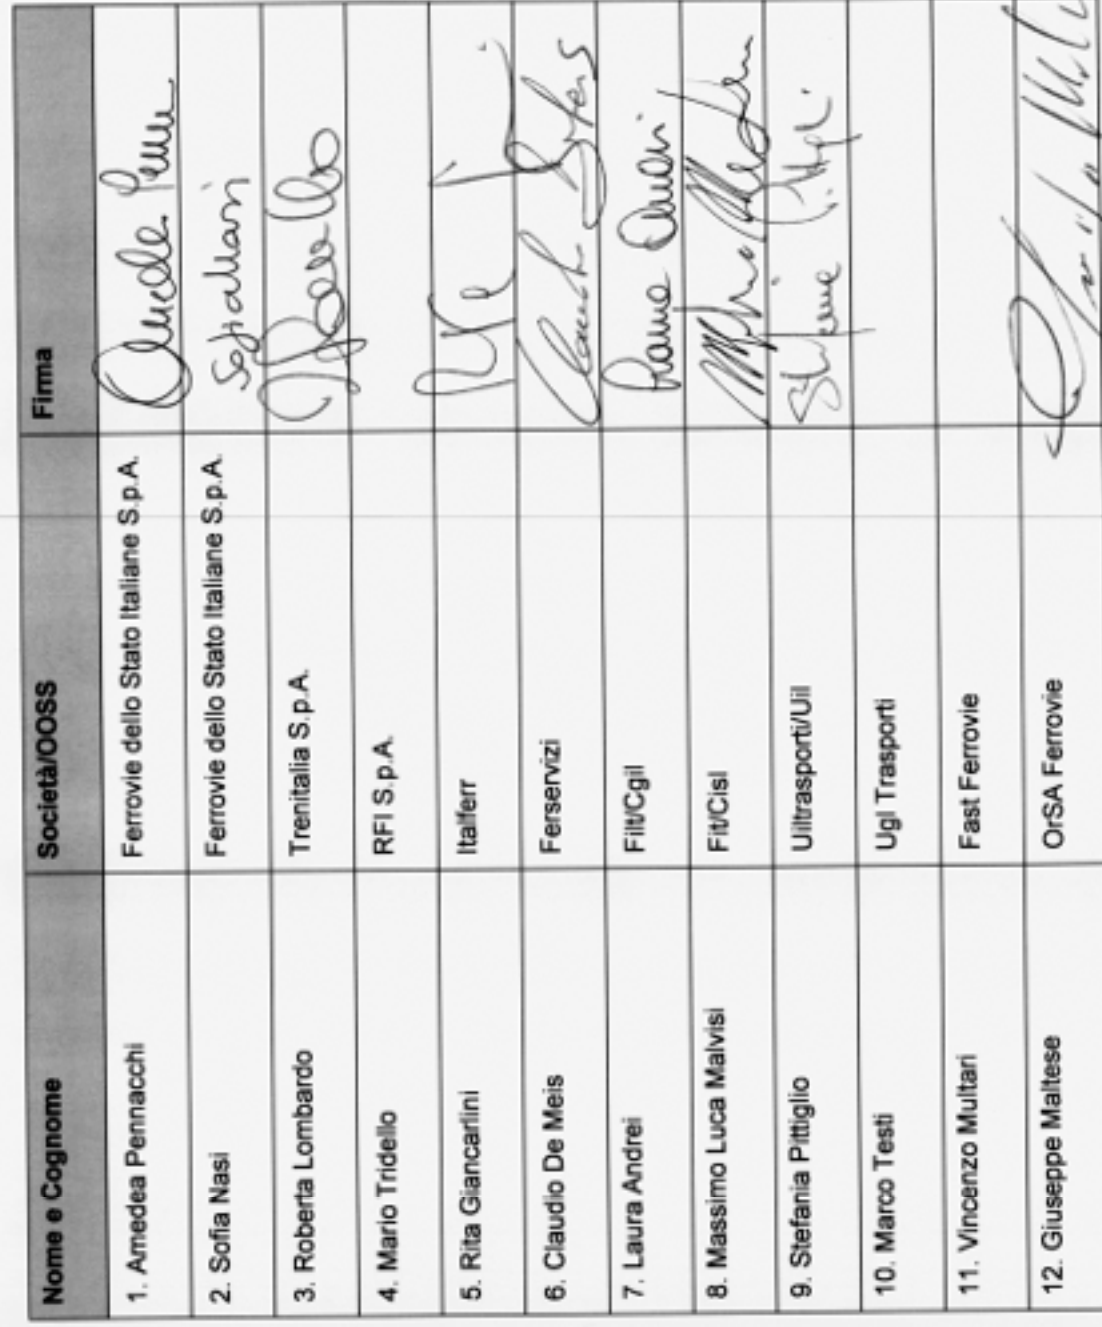 Nome e Cognome Società/OOSS Firma
1. Amedea Pennacchi Ferrovie dello Stato Italiane S.p.A.
2. Sofia Nasi Ferrovie dello Stato Italiane S.p.A.
3. Roberta Lombardo Trenitalia S.p.A.
4. Mario Tridello RFI S.p.A.
5. Rita Giancarlini Italferr
6. Claudio De Meis Ferservizi
7. Laura Andrei Filt/Cgil
8. Massimo Luca Malvisi Fit/Cisl
9. Stefania Pittiglio Uiltrasporti/Uil
10. Marco Testi Ugl Trasporti
11. Vincenzo Multari Fast Ferrovie
12. Giuseppe Maltese OrSA Ferrovie